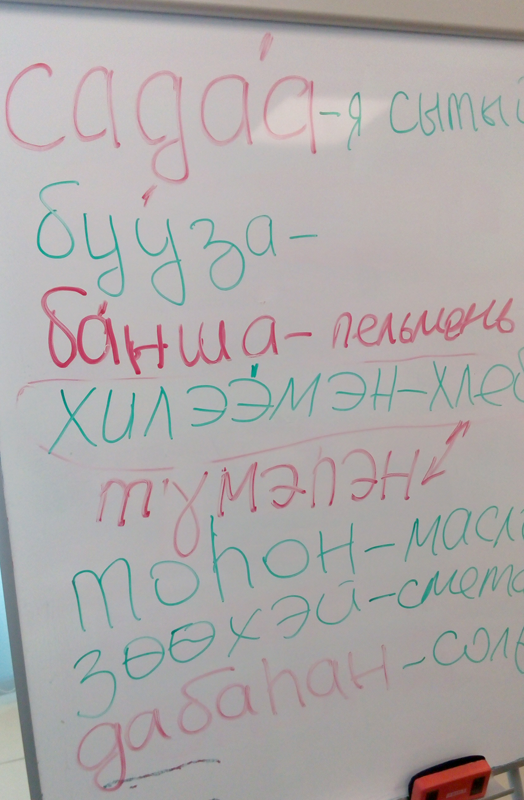 сада́а-я сытый
бу́уза-
ба́нша-пельмень
хилээ́мэн-хлеб
түмэпэн
тоһон-масло
зөөхэй-смета
дабаһан-соль